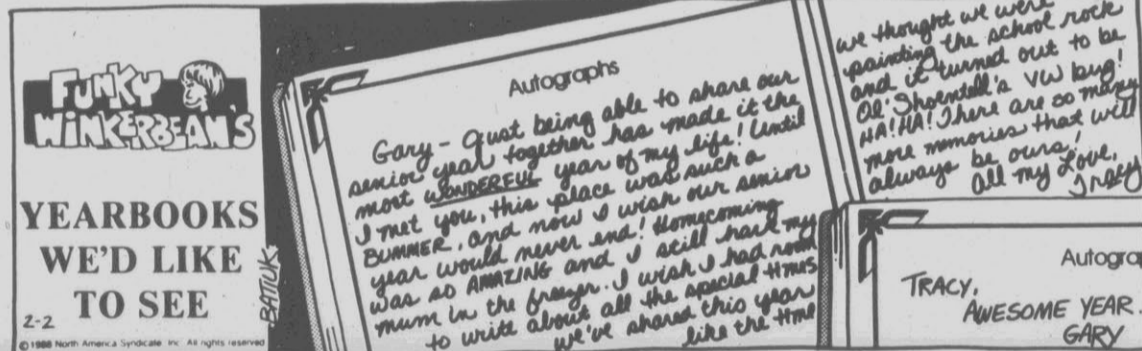 FUNKY
WINKERBEAN'S
YEARBOOKS
WE'D LIKE
TO SEE
2-2
BATIUK
©1988 North America Syndicate, Inc. All rights reserved
Autographs
Gary - Just being able to share our
senior year together has made it the
most WONDERFUL year of my life! Until
I met you, this place was such a
BUMMER, and now I wish our senior
year would never end! Homecoming
was so AMAZING and I still have my
mum in the freezer. I wish I had room
to write about all the special times
we've shared this year
like the time
we thought we were
painting the school rock
and it turned out to be
Ol' Shoentell's VW bug!
HA! HA! There are so many
more memories that will
always be ours!
All my Love,
Tracy
Autogra
TRACY,
AWESOME YEAR.
GARY